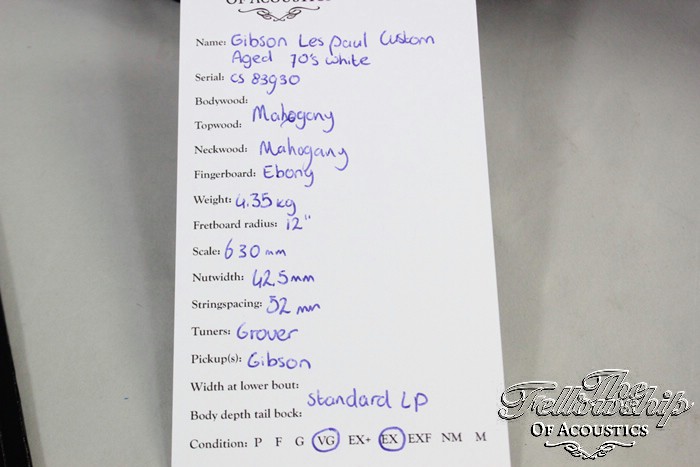 OF ACOUSTICS
Name: Gibson Les Paul Custom
Aged 70's white
Serial: CS 83930
Bodywood:
Mahogany
Topwood:
Neckwood: Mahogany
Fingerboard: Ebony
Weight: 4.35 kg
Fretboard radius: 12"
Scale: 630 mm
Nutwidth: 42.5mm
Stringspacing: 52 mm
Tuners: Grover
Pickup(s): Gibson
Width at lower bout:
Standard LP
Body depth tail bock:
Condition: P F G VG EX+ EX EXF NM M
The
Fellowship
OF ACOUSTICS